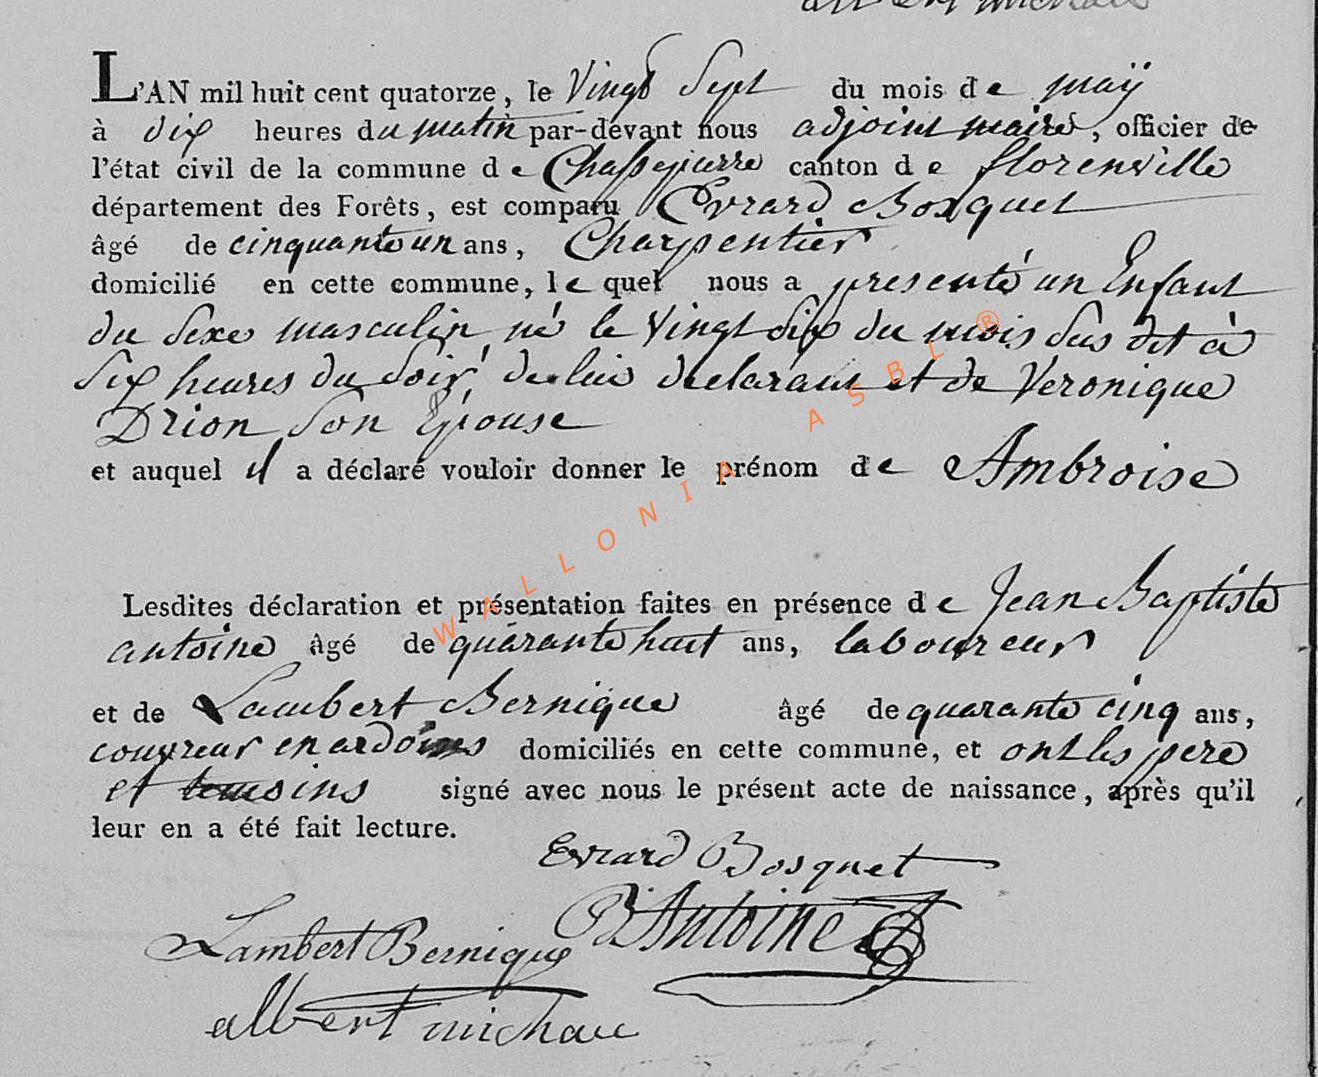 L'AN mil huit cent quatorze, le Vingt Sept du mois de maÿ
à dix heures du matin par-devant nous adjoint maire, officier de
l'état civil de la commune de Chassepierre canton de florenville
département des Forêts, est comparu Evrard Bosquet
âgé de cinquante un ans, Charpentier
domicilié en cette commune, lequel nous a presenté un Enfant
du Sexe masculin, né le Vingt Six du mois Sus dit à
Six heures du Soir, de lui declarant et de Veronique
Drion Son Epouse
et auquel il a déclaré vouloir donner le prénom de Ambroise
Lesdites déclaration et présentation faites en présence de Jean Baptiste
antoine âgé de quarante huit ans, laboureur
et de Lambert Bernique âgé de quarante cinq ans,
couvreur en domiciliés en cette commune, et ont les pere
et temoins signé avec nous le présent acte de naissance, après qu'il
leur en a été fait lecture.
Evrard Bosquet
Antoine
Lambert Bernique
albert michau
WALLONIA ASBL ®